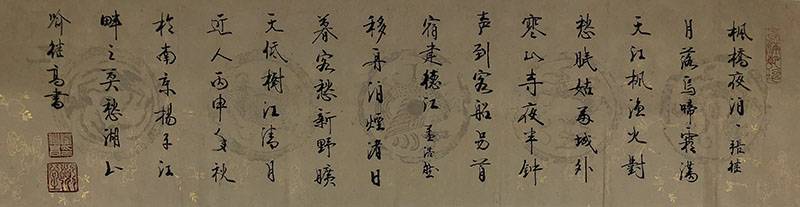 楓橋夜泊、張继
月落烏啼霜满
天江枫渔火對
愁眠姑苏城外
寒山寺夜半钟
声到客船另首
宿建德江孟浩然
移舟泊煙渚日
暮客愁新野曠
天低樹江清月
近人丙申年秋
於南京楊子江
畔之莫愁湖
喻继高書